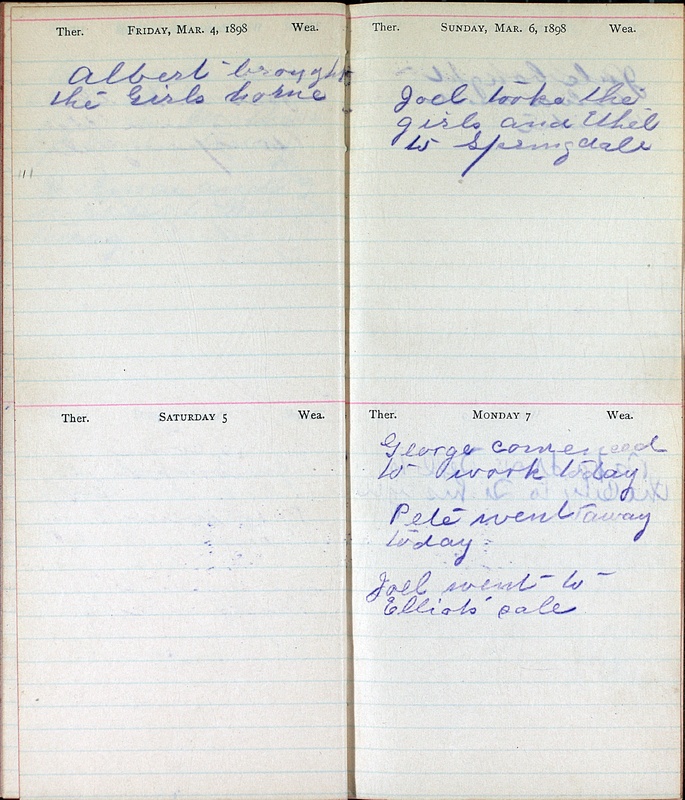 Ther. FRIDAY, MAR. 4, 1898 Wea.
Albert brought
the Girls home
Ther. SATURDAY 5 Wea.
Ther. SUNDAY, MAR. 6, 1898 Wea.
Joel tooke the
girls and Ethel
to Springdale
Ther. MONDAY 7 Wea.
George comenced
to work today
Pete went away
today
Joel went to
Elliots sale